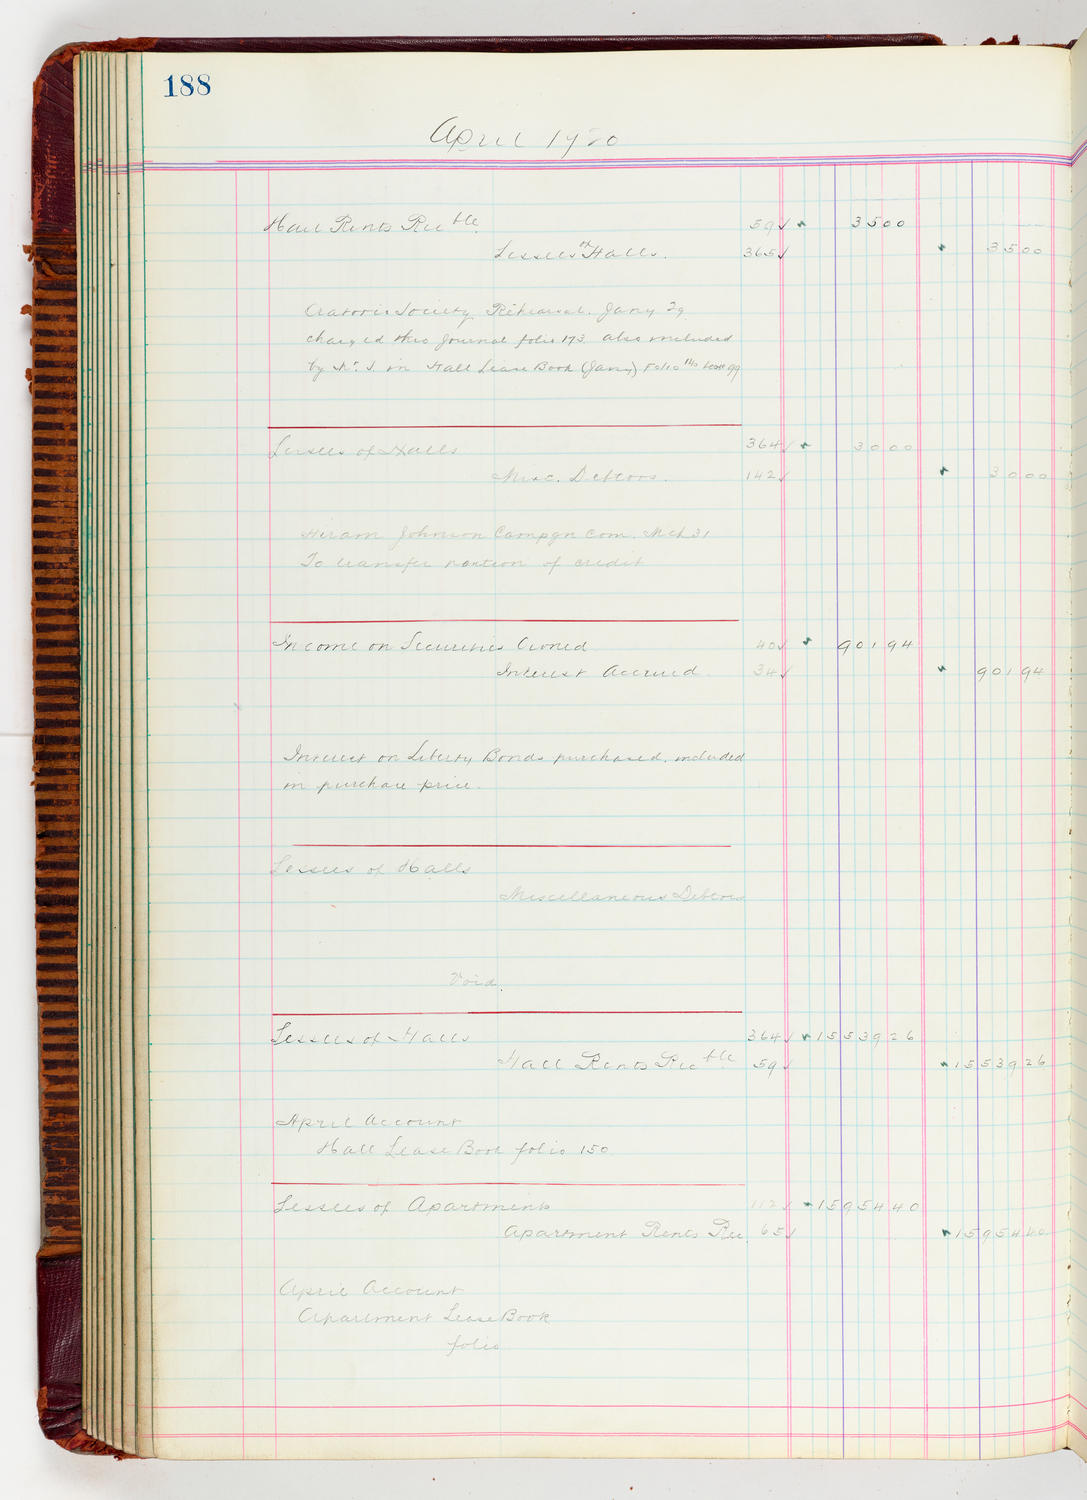 188
April 1920
Hall Rents Rec ble 59 ✓ 35 00
Lessees of Halls. 365 ✓ 35 00
Oratorio Society Rehearsal. Jany 29
charged thro Journal folio 173. also included
by Mr. in Hall Lease Book (Jany) Folio 140 Lease 99
Lessees of Halls 364 ✓ 30 00
Misc. Debtors. 142 ✓ 30 00
Hiram Johnson Campgn Com. Mch 31
To transfer portion of credit
Income on Securities Owned 40 ✓ 901 94
Interest Accrued 34 ✓ 901 94
Interest on Liberty Bonds purchased, included
in purchase price.
Lessees of Halls
Miscellaneous Debtors
Void.
Lessees of Halls 364 ✓ 15539 26
Hall Rents Rec ble 59 ✓ 15539 26
April Account
Hall Lease Book folio 150
Lessees of Apartments 112 ✓ 15954 40
Apartment Rents Rec 65 ✓ 15954 40
April Account
Apartment Lease Book
folio